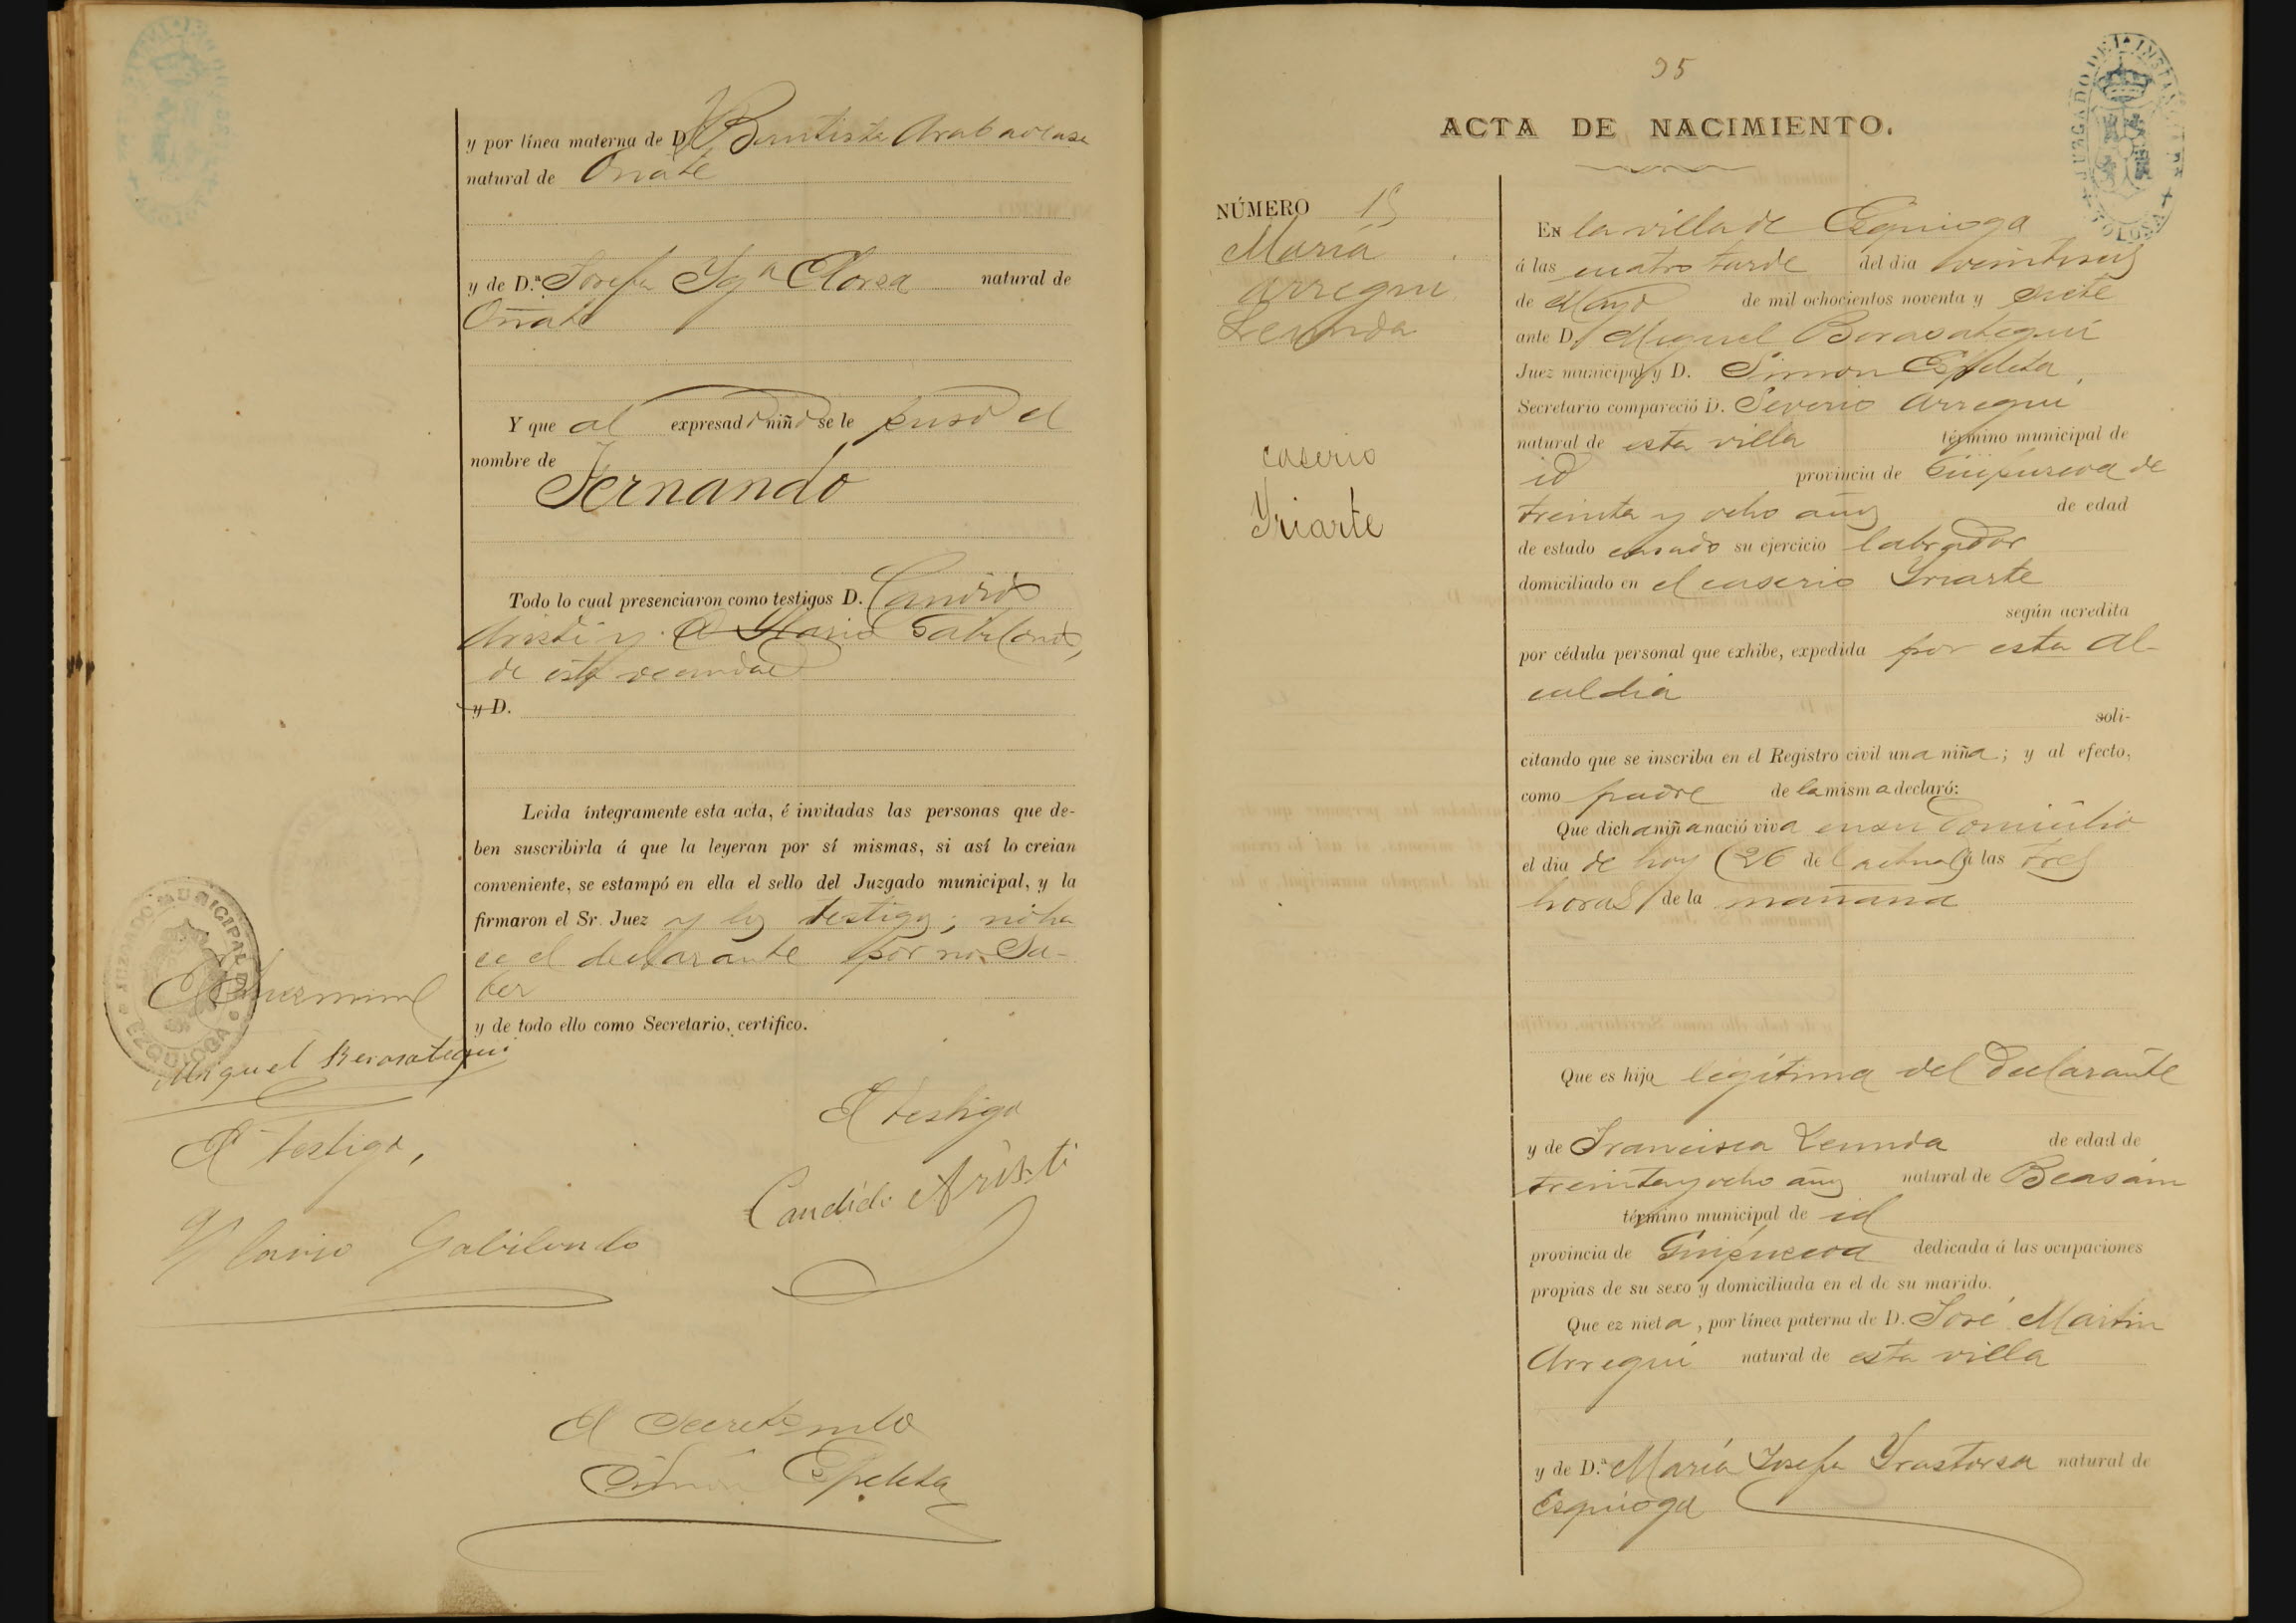 y por línea materna de D. Bautista
natural de Oñate
y de D.ª Josefa Yg.ª Elorza natural de
Oñate
Y que al expresado niño se le puso el
nombre de
Fernando
Todo lo cual presenciaron como testigos D. Candido
Aristi y Hario Gabilondo,
de esta vecindad
y D.
Leida íntegramente esta acta, é invitadas las personas que de-
ben suscribirla á que la leyeran por sí mismas, si así lo creian
conveniente, se estampó en ella el sello del Juzgado municipal, y la
firmaron el Sr. Juez y los testigos; no ha
ce el declarante por no sa-
ber
y de todo ello como Secretario, certifico.
JUZGADO MUNICIPAL DE EZQUIOGA
Miguel Berasategui
El testigo,
Gabilondo
El testigo
Candido Aristi
El Secretario
Simón Espeleta
95
ACTA DE NACIMIENTO.
JUZGADO DE 1ª INSTANCIA TOLOSA
NÚMERO 15
María
Arregui
Leunda
caserio
Yriarte
EN la villa de Esquioga
á las cuatro tarde del dia veintiseis
de Mayo de mil ochocientos noventa y siete
ante D. Miguel Berasategui
Juez municipal y D. Simon Espeleta,
Secretario compareció D. Severio Arregui
natural de esta villa término municipal de
id provincia de Guipuzcoa de
treinta y ocho años de edad
de estado casado su ejercicio labrador
domiciliado en el caserio Yriarte
según acredita
por cédula personal que exhibe, expedida por esta Al-
caldia
soli-
citando que se inscriba en el Registro civil una niña; y al efecto,
como padre de la misma declaró:
Que dicha niña nació viva en su domicilio
el dia de hoy (26 del actual) á las tres
horas de la mañana
Que es hija legítima del declarante
y de Francisca Leunda de edad de
treinta y ocho años natural de Beasain
término municipal de id
provincia de Guipuzcoa dedicada á las ocupaciones
propias de su sexo y domiciliada en el de su marido.
Que ez nieta, por línea paterna de D. José Martin
Arregui natural de esta villa
y de D.ª María Josefa Yrastorza natural de
Esquioga